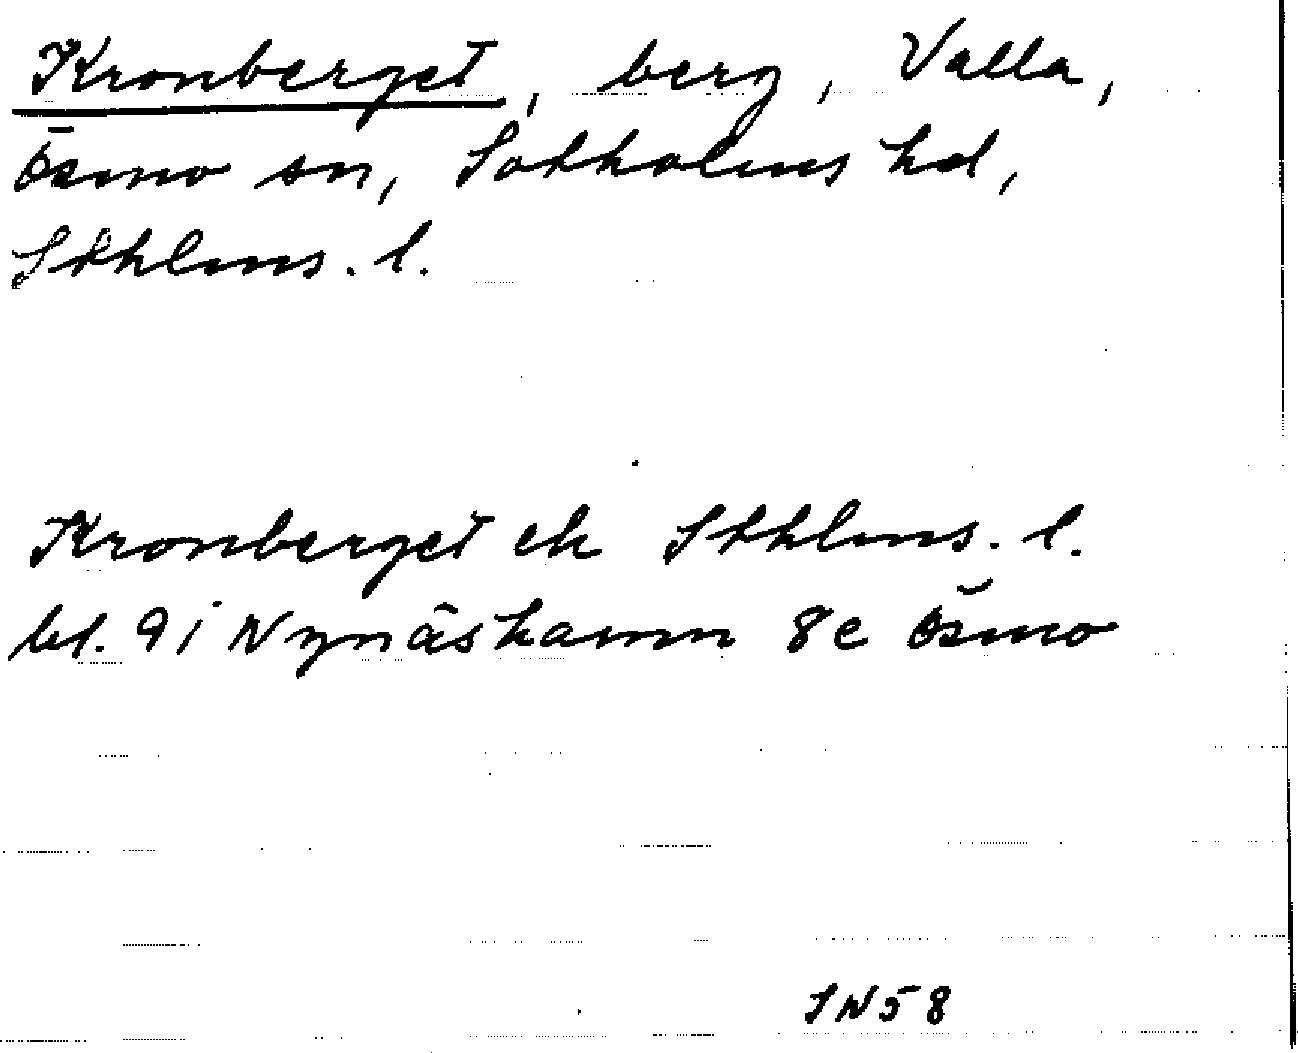 Kronberget, berg, Valla,
Ösmo sn, Sotholms hd,
Sthlms. l.
Kronberget ek Sthlms. l.
bl. 91 Nynäshamn 8e Ösmo
SN58